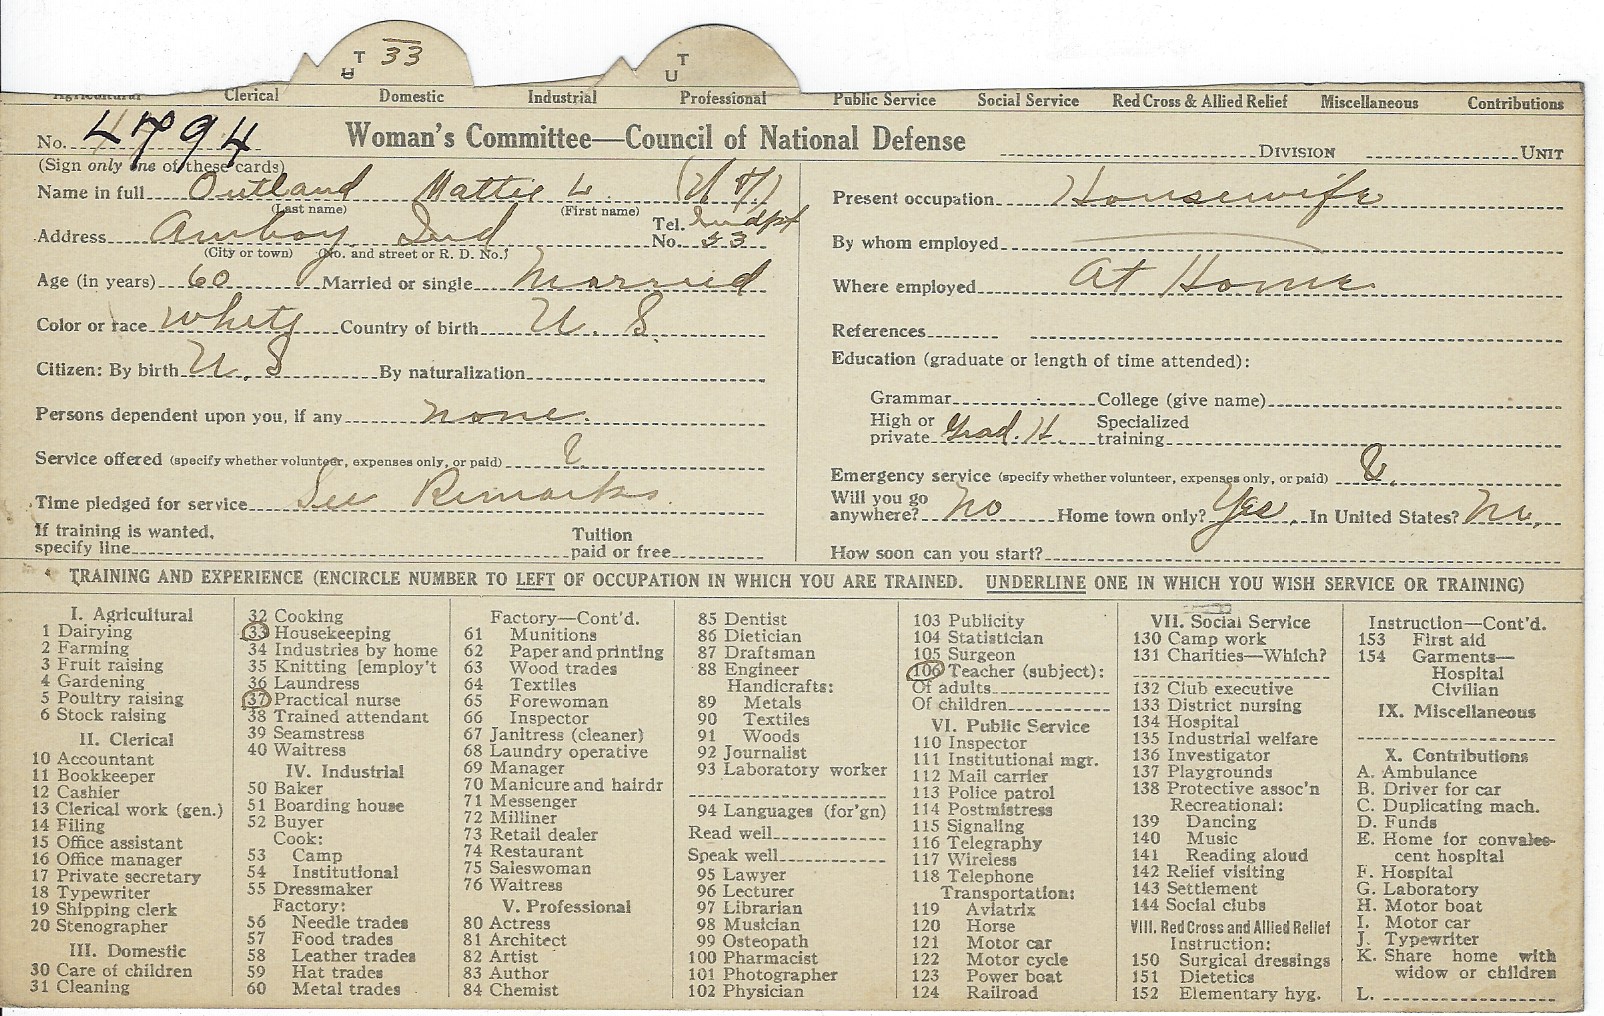 T 33
U
T
U
Agricultural Clerical Domestic Industrial Professional Public Service Social Service Red Cross & Allied Relief Miscellaneous Contributions
No. 4794 Woman's Committee—Council of National Defense DIVISION UNIT
(Sign only one of these cards)
Name in full Outland Mattie L.
(Last name) (First name)
Address Amboy Ind. Tel. No. Indpt 33
(City or town) (No. and street or R. D. No.)
Age (in years) 60 Married or single Married
Color or race White Country of birth U. S.
Citizen: By birth U. S By naturalization
Persons dependent upon you, if any none.
Service offered (specify whether volunteer, expenses only, or paid)
Time pledged for service See Remarks.
If training is wanted,
specify line Tuition paid or free
Present occupation Housewife
By whom employed
Where employed At Home
References
Education (graduate or length of time attended):
Grammar College (give name)
High or private Grad. H. Specialized training
Emergency service (specify whether volunteer, expenses only, or paid)
Will you go anywhere? No Home town only? Yes. In United States? No.
How soon can you start?
TRAINING AND EXPERIENCE (ENCIRCLE NUMBER TO LEFT OF OCCUPATION IN WHICH YOU ARE TRAINED. UNDERLINE ONE IN WHICH YOU WISH SERVICE OR TRAINING)
I. Agricultural
1 Dairying
2 Farming
3 Fruit raising
4 Gardening
5 Poultry raising
6 Stock raising
II. Clerical
10 Accountant
11 Bookkeeper
12 Cashier
13 Clerical work (gen.)
14 Filing
15 Office assistant
16 Office manager
17 Private secretary
18 Typewriter
19 Shipping clerk
20 Stenographer
III. Domestic
30 Care of children
31 Cleaning
32 Cooking
33 Housekeeping
34 Industries by home
35 Knitting [employ't
36 Laundress
37 Practical nurse
38 Trained attendant
39 Seamstress
40 Waitress
IV. Industrial
50 Baker
51 Boarding house
52 Buyer
Cook:
53 Camp
54 Institutional
55 Dressmaker
Factory:
56 Needle trades
57 Food trades
58 Leather trades
59 Hat trades
60 Metal trades
Factory—Cont'd.
61 Munitions
62 Paper and printing
63 Wood trades
64 Textiles
65 Forewoman
66 Inspector
67 Janitress (cleaner)
68 Laundry operative
69 Manager
70 Manicure and hairdr
71 Messenger
72 Milliner
73 Retail dealer
74 Restaurant
75 Saleswoman
76 Waitress
V. Professional
80 Actress
81 Architect
82 Artist
83 Author
84 Chemist
85 Dentist
86 Dietician
87 Draftsman
88 Engineer
Handicrafts:
89 Metals
90 Textiles
91 Woods
92 Journalist
93 Laboratory worker
94 Languages (for'gn)
Read well
Speak well
95 Lawyer
96 Lecturer
97 Librarian
98 Musician
99 Osteopath
100 Pharmacist
101 Photographer
102 Physician
103 Publicity
104 Statistician
105 Surgeon
106 Teacher (subject):
Of adults
Of children
VI. Public Service
110 Inspector
111 Institutional mgr.
112 Mail carrier
113 Police patrol
114 Postmistress
115 Signaling
116 Telegraphy
117 Wireless
118 Telephone
Transportation:
119 Aviatrix
120 Horse
121 Motor car
122 Motor cycle
123 Power boat
124 Railroad
VII. Social Service
130 Camp work
131 Charities—Which?
132 Club executive
133 District nursing
134 Hospital
135 Industrial welfare
136 Investigator
137 Playgrounds
138 Protective assoc'n
Recreational:
139 Dancing
140 Music
141 Reading aloud
142 Relief visiting
143 Settlement
144 Social clubs
VIII. Red Cross and Allied Relief
Instruction:
150 Surgical dressings
151 Dietetics
152 Elementary hyg.
Instruction—Cont'd.
153 First aid
154 Garments—
Hospital
Civilian
IX. Miscellaneous
X. Contributions
A. Ambulance
B. Driver for car
C. Duplicating mach.
D. Funds
E. Home for convales-
cent hospital
F. Hospital
G. Laboratory
H. Motor boat
I. Motor car
J. Typewriter
K. Share home with
widow or children
L.